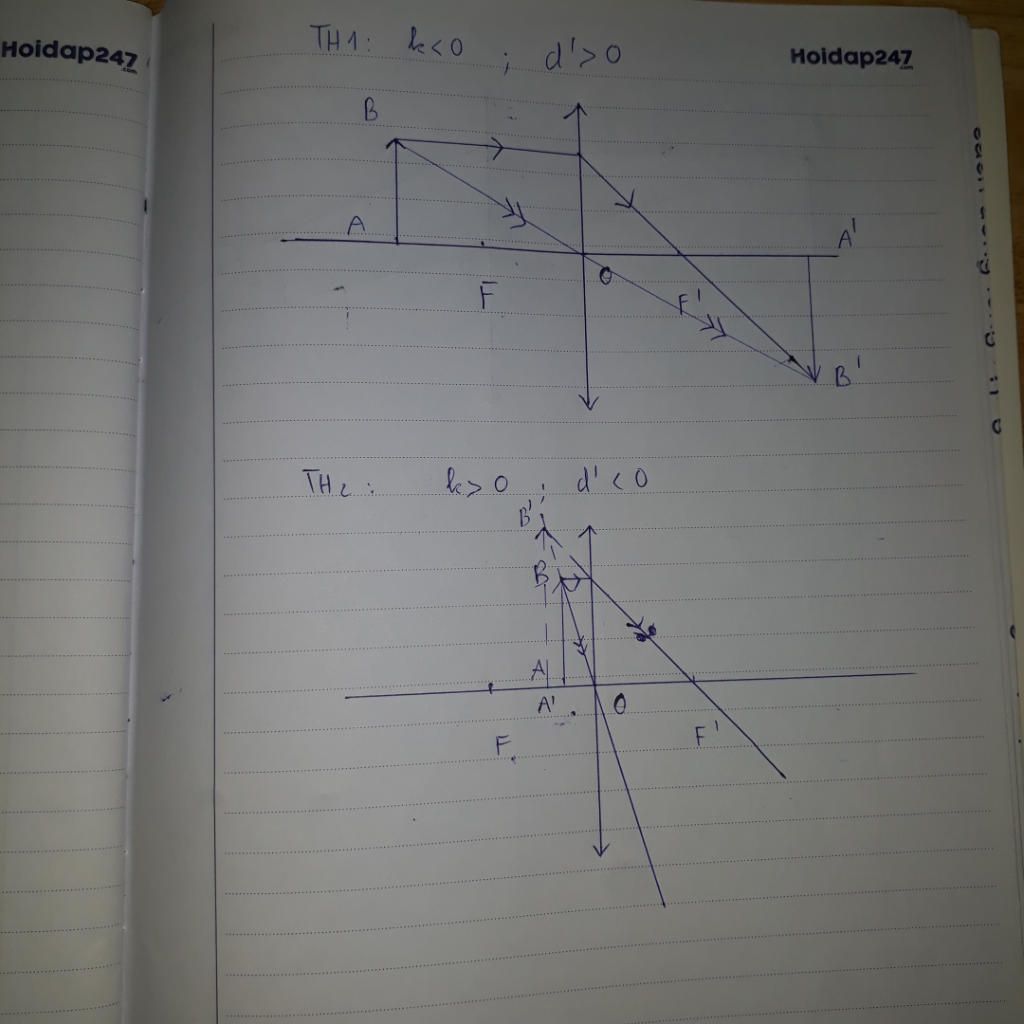 Hoidap247
.com
TH1: k<0 ; d'>0
Hoidap247
.com
B
A
A'
F
O
F'
B'
TH2: k>0 ; d'<0
B'
B
A
A'
O
F
F'